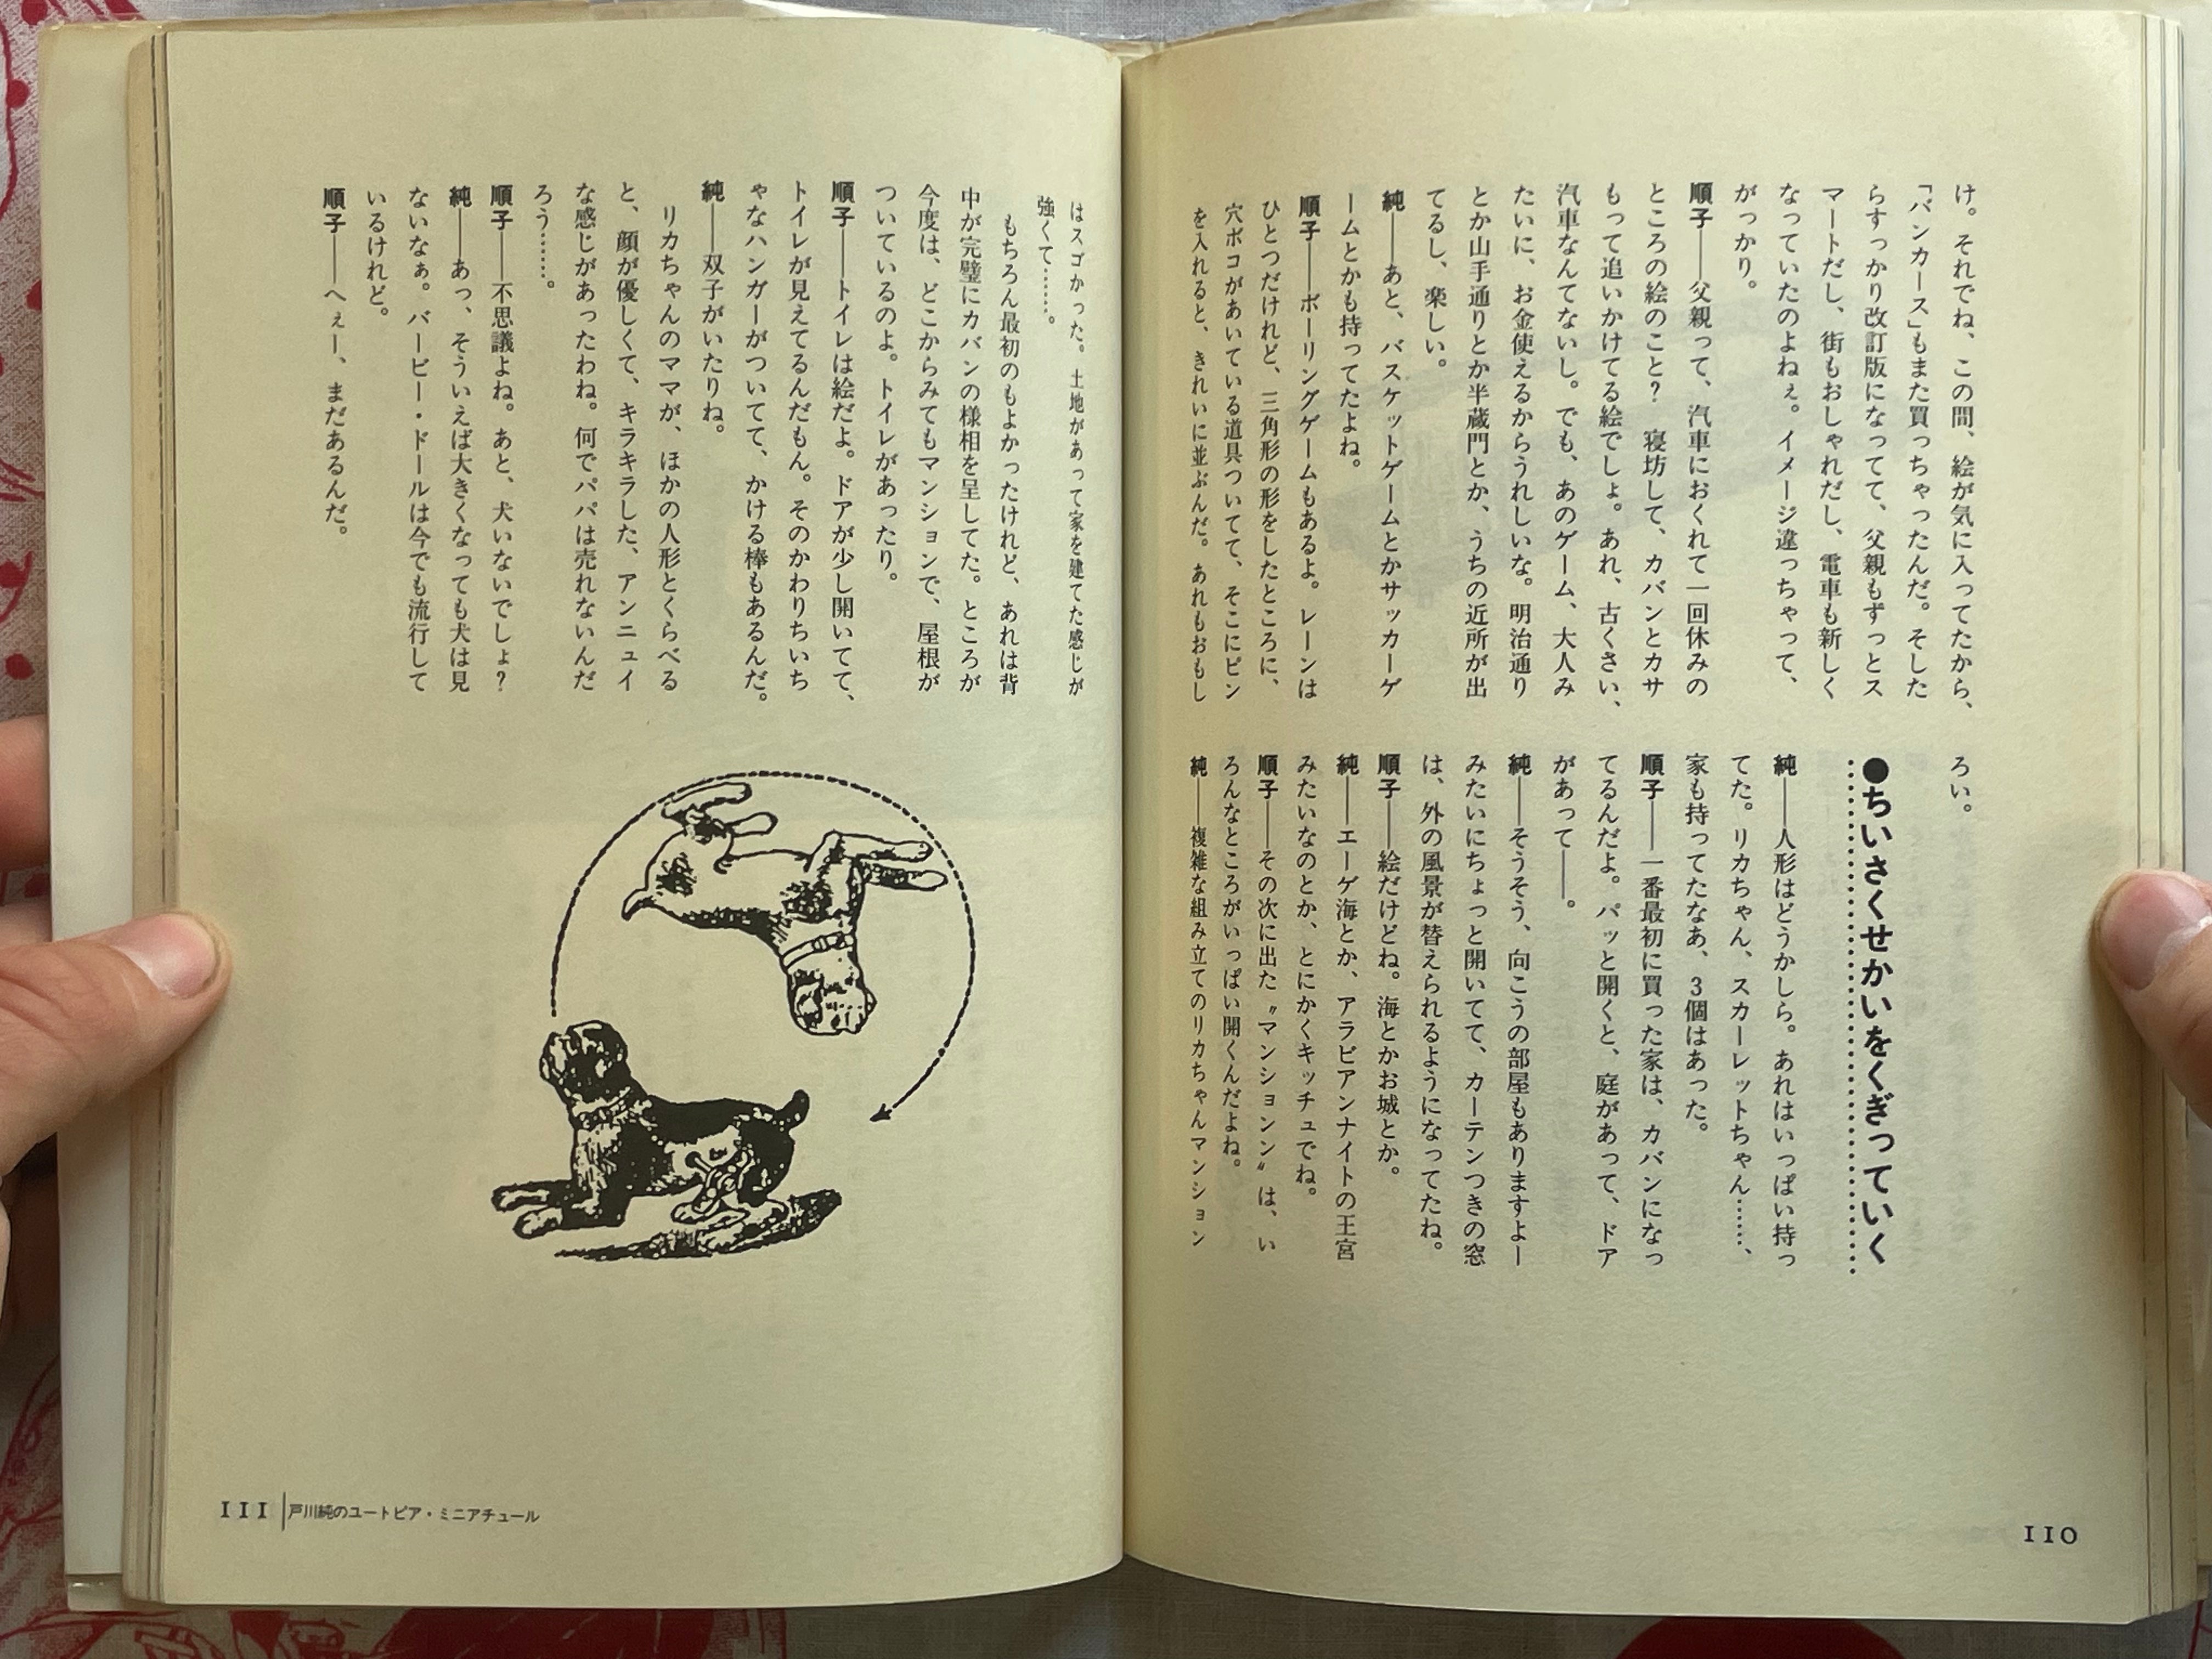 け。それでね、この間、絵が気に入ってたから、
「バンカース」もまた買っちゃったんだ。そした
らすっかり改訂版になってて、父親もずっとス
マートだし、街もおしゃれだし、電車も新しく
なっていたのよねぇ。イメージ違っちゃって、
がっかり。
順子――父親って、汽車におくれて一回休みの
ところの絵のこと？　寝坊して、カバンとカサ
もって追いかけてる絵でしょ。あれ、古くさい、
汽車なんてないし。でも、あのゲーム、大人み
たいに、お金使えるからうれしいな。明治通り
とか山手通りとか半蔵門とか、うちの近所が出
てるし、楽しい。
純――あと、バスケットゲームとかサッカーゲ
ームとかも持ってたよね。
順子――ボーリングゲームもあるよ。レーンは
ひとつだけれど、三角形の形をしたところに、
穴ボコがあいている道具ついてて、そこにピン
を入れると、きれいに並ぶんだ。あれもおもし
ろい。
●ちいさくせかいをくぎっていく
純――人形はどうかしら。あれはいっぱい持っ
てた。リカちゃん、スカーレットちゃん……、
家も持ってたなあ、3個はあった。
順子――一番最初に買った家は、カバンになっ
てるんだよ。パッと開くと、庭があって、ドア
があって――。
純――そうそう、向こうの部屋もありますよー
みたいにちょっと開いてて、カーテンつきの窓
は、外の風景が替えられるようになってたね。
順子――絵だけどね。海とかお城とか。
純――エーゲ海とか、アラビアンナイトの王宮
みたいなのとか、とにかくキッチュでね。
順子――その次に出た〝マンションン〟は、い
ろんなところがいっぱい開くんだよね。
純――複雑な組み立てのリカちゃんマンション
110
はスゴかった。土地があって家を建てた感じが
強くて……。
もちろん最初のもよかったけれど、あれは背
中が完璧にカバンの様相を呈してた。ところが
今度は、どこからみてもマンションで、屋根が
ついているのよ。トイレがあったり。
順子――トイレは絵だよ。ドアが少し開いてて、
トイレが見えてるんだもん。そのかわりちいち
ゃなハンガーがついてて、かける棒もあるんだ。
純――双子がいたりね。
リカちゃんのママが、ほかの人形とくらべる
と、顔が優しくて、キラキラした、アンニュイ
な感じがあったわね。何でパパは売れないんだ
ろう……。
順子――不思議よね。あと、犬いないでしょ？
純――あっ、そういえば大きくなっても犬は見
ないなぁ。バービー・ドールは今でも流行して
いるけれど。
順子――へぇー、まだあるんだ。
111 戸川純のユートピア・ミニアチュール